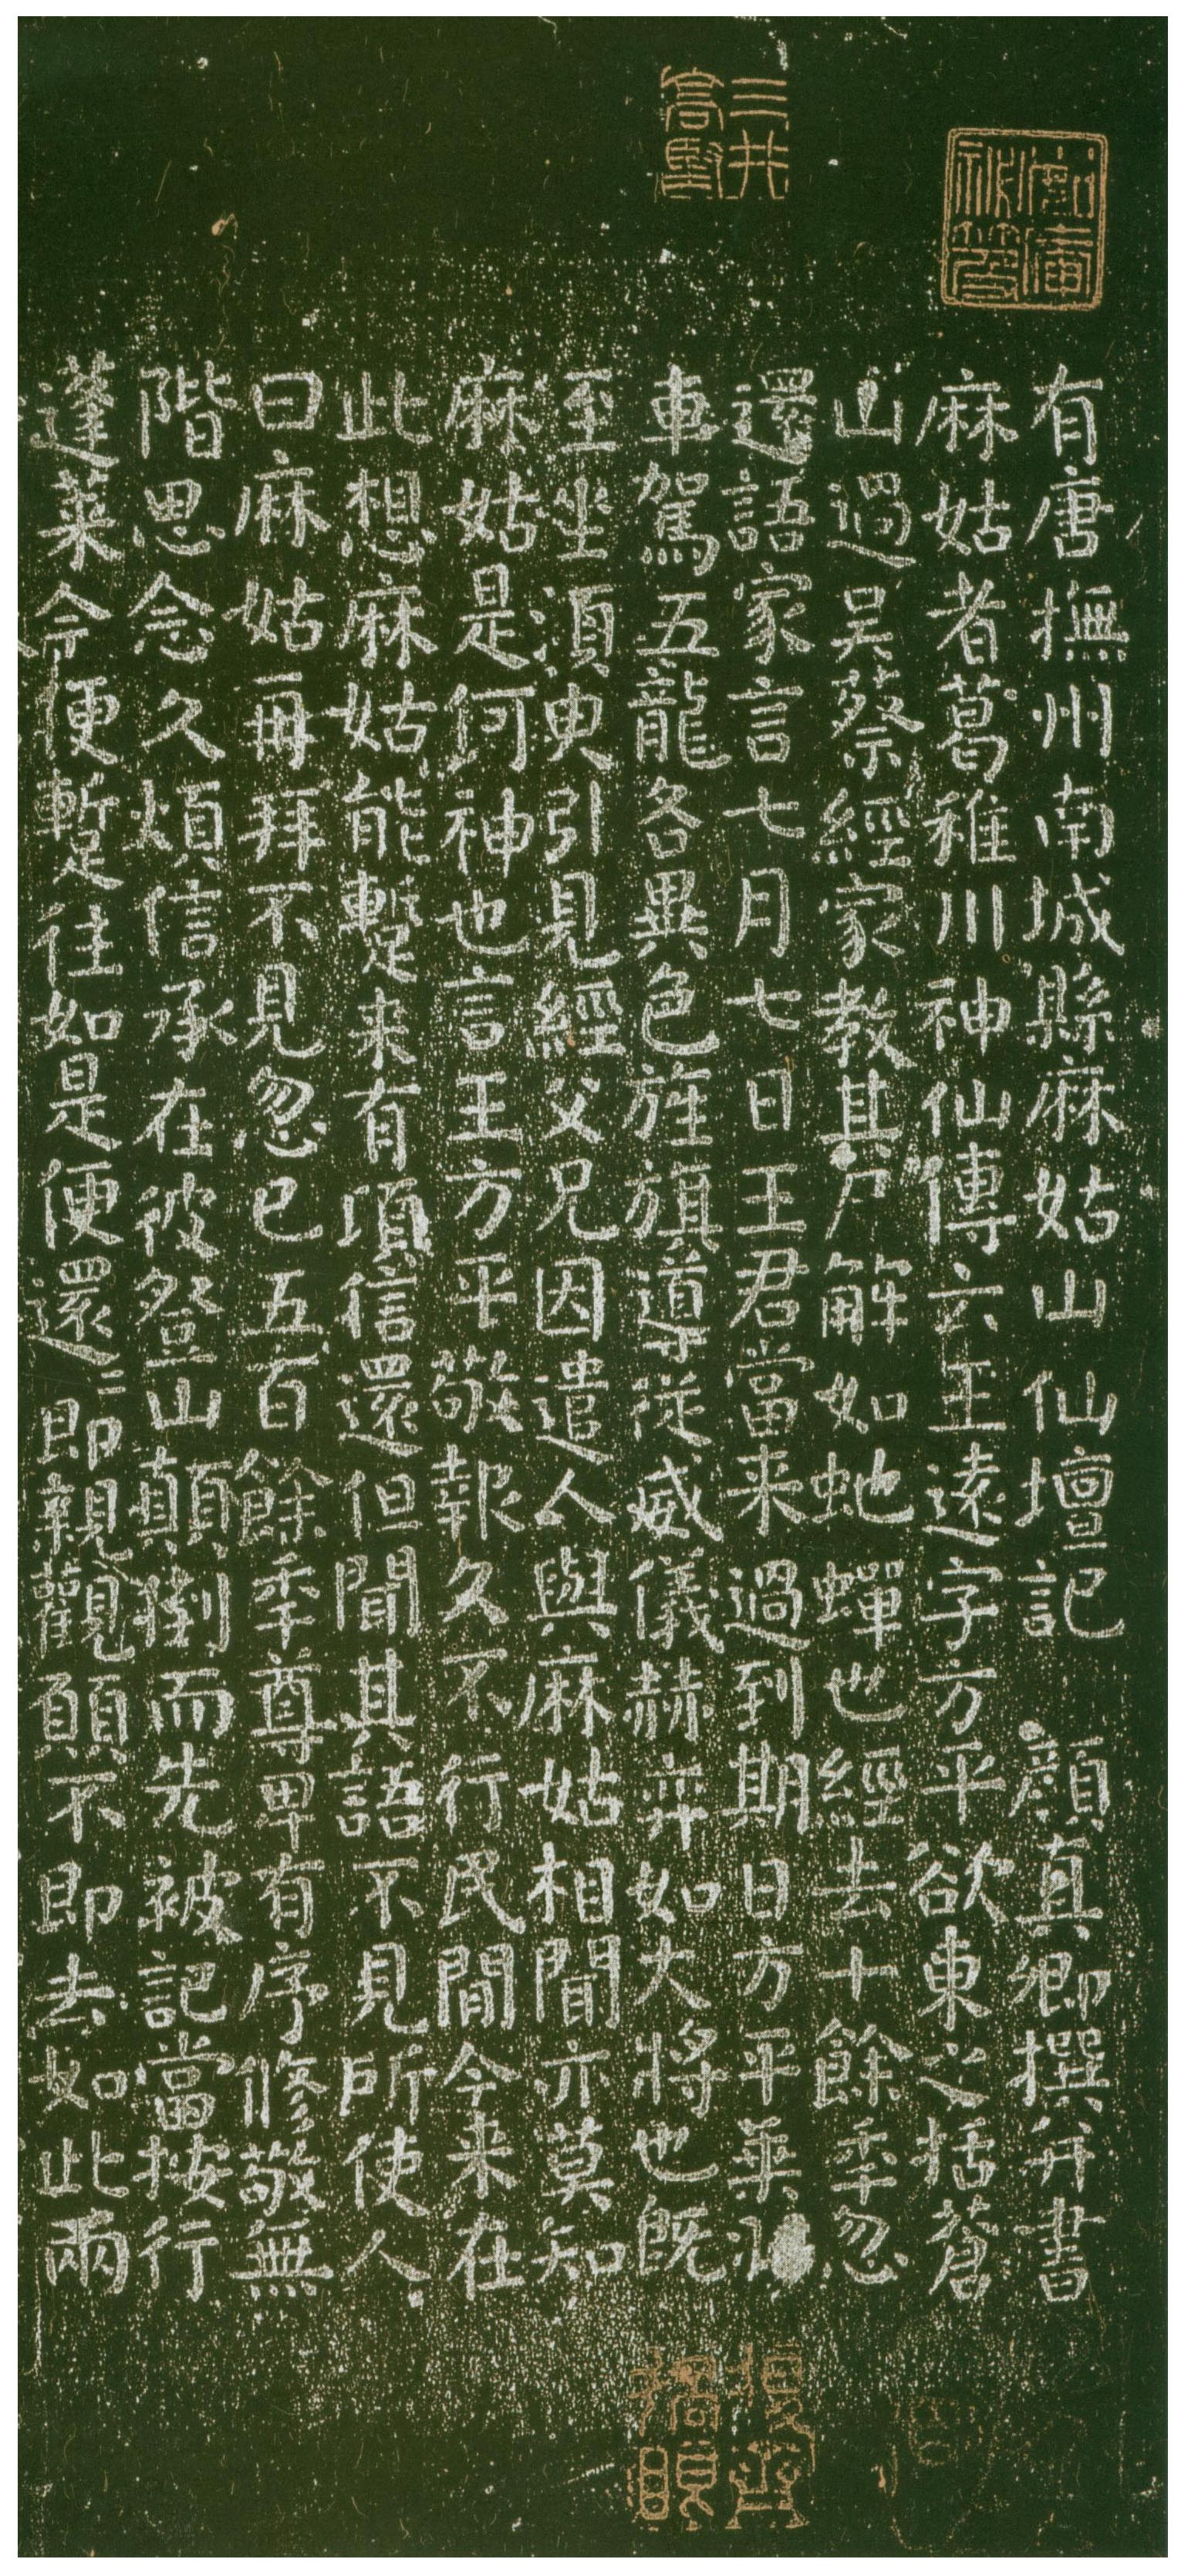 有唐撫州南城縣麻姑山仙壇記 顏真卿撰并書
麻姑者葛稚川神仙傳云王遠字方平欲東之括蒼
山過吴蔡經家教其尸解如虵蟬也經去十餘秊忽
還語家言七月七日王君當来過到期日方平乗
車駕五龍各異色旌旗導従威儀赫弈如大將也既
至坐須臾引見經父兄因遣人與麻姑相聞亦莫知
麻姑是何神也言王方平敬報久不行民間今来在
此想麻姑能蹔来有頃信還但聞其語不見所使人
曰麻姑再拜不見忽已五百餘秊尊卑有序修敬無
階思念久煩信承在彼登山顛倒而先被記當按行
蓬萊今便蹔往如是便還還即親觀願不即去如此兩
三井高堅